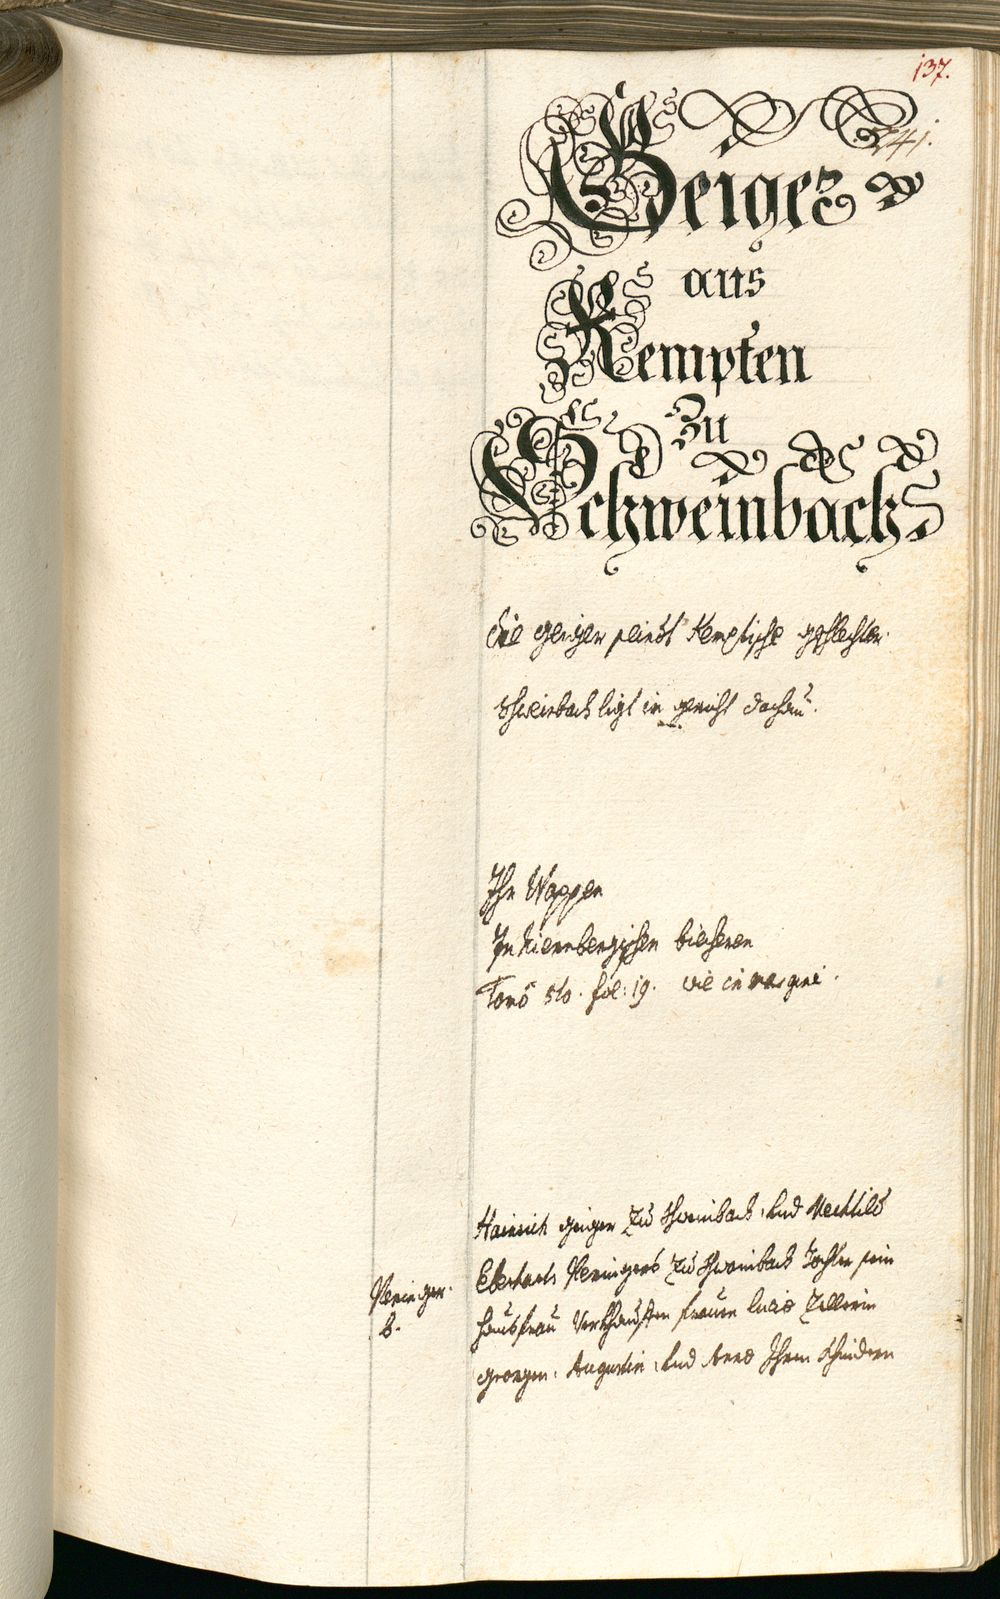 137.
241.
Geiger
aus
Kempten
Zu
Schweinbach
die geiger seindt Kemptische geschlechter.
Schweinbach ligt in gericht Dachau.
Ihr Wappen
In Nirnbergischen biecheren
Tomo 5to. fol: 19. wie in margine.
Hainrich geiger zu Schweinbach, und Mechtild
Eberharts Neringers zu Schweinbach Tochter sein
Neringer.
hausfrau verkhauften frauen Lucia Zellerin
B.
georgen, Augustin, und Anna Ihren Khindern